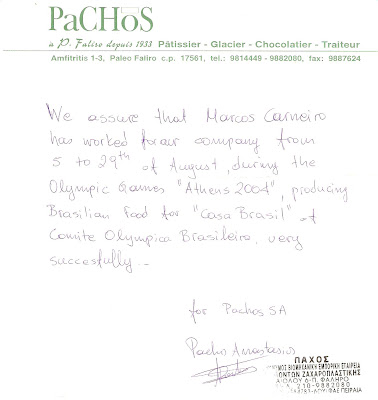 PaCHoS
à P. Faliro depuis 1933 Pâtissier - Glacier - Chocolatier - Traiteur
Amfitritis 1-3, Paleo Faliro c.p. 17561, tel.: 9814449 - 9882080, fax: 9887624
We assure that Marcos Carneiro
has worked for our company from
5 to 29th of August, during the
Olympic Games "Athens 2004", producing
Brasilian Food for "Casa Brasil" of
Comite Olympica Brasileiro, very
succesfully -
for Pachos SA
Pachos Anastasios
ΠΑΧΟΣ
ΒΙΟΜΗΧΑΝΙΚΗ ΕΜΠΟΡΙΚΗ ΕΤΑΙΡΕΙΑ
ΖΑΧΑΡΟΠΛΑΣΤΙΚΗΣ
ΑΙΟΛΟΥ 6-Π. ΦΑΛΗΡΟ
210-9882080
ΦΑΕ ΠΕΙΡΑΙΑ